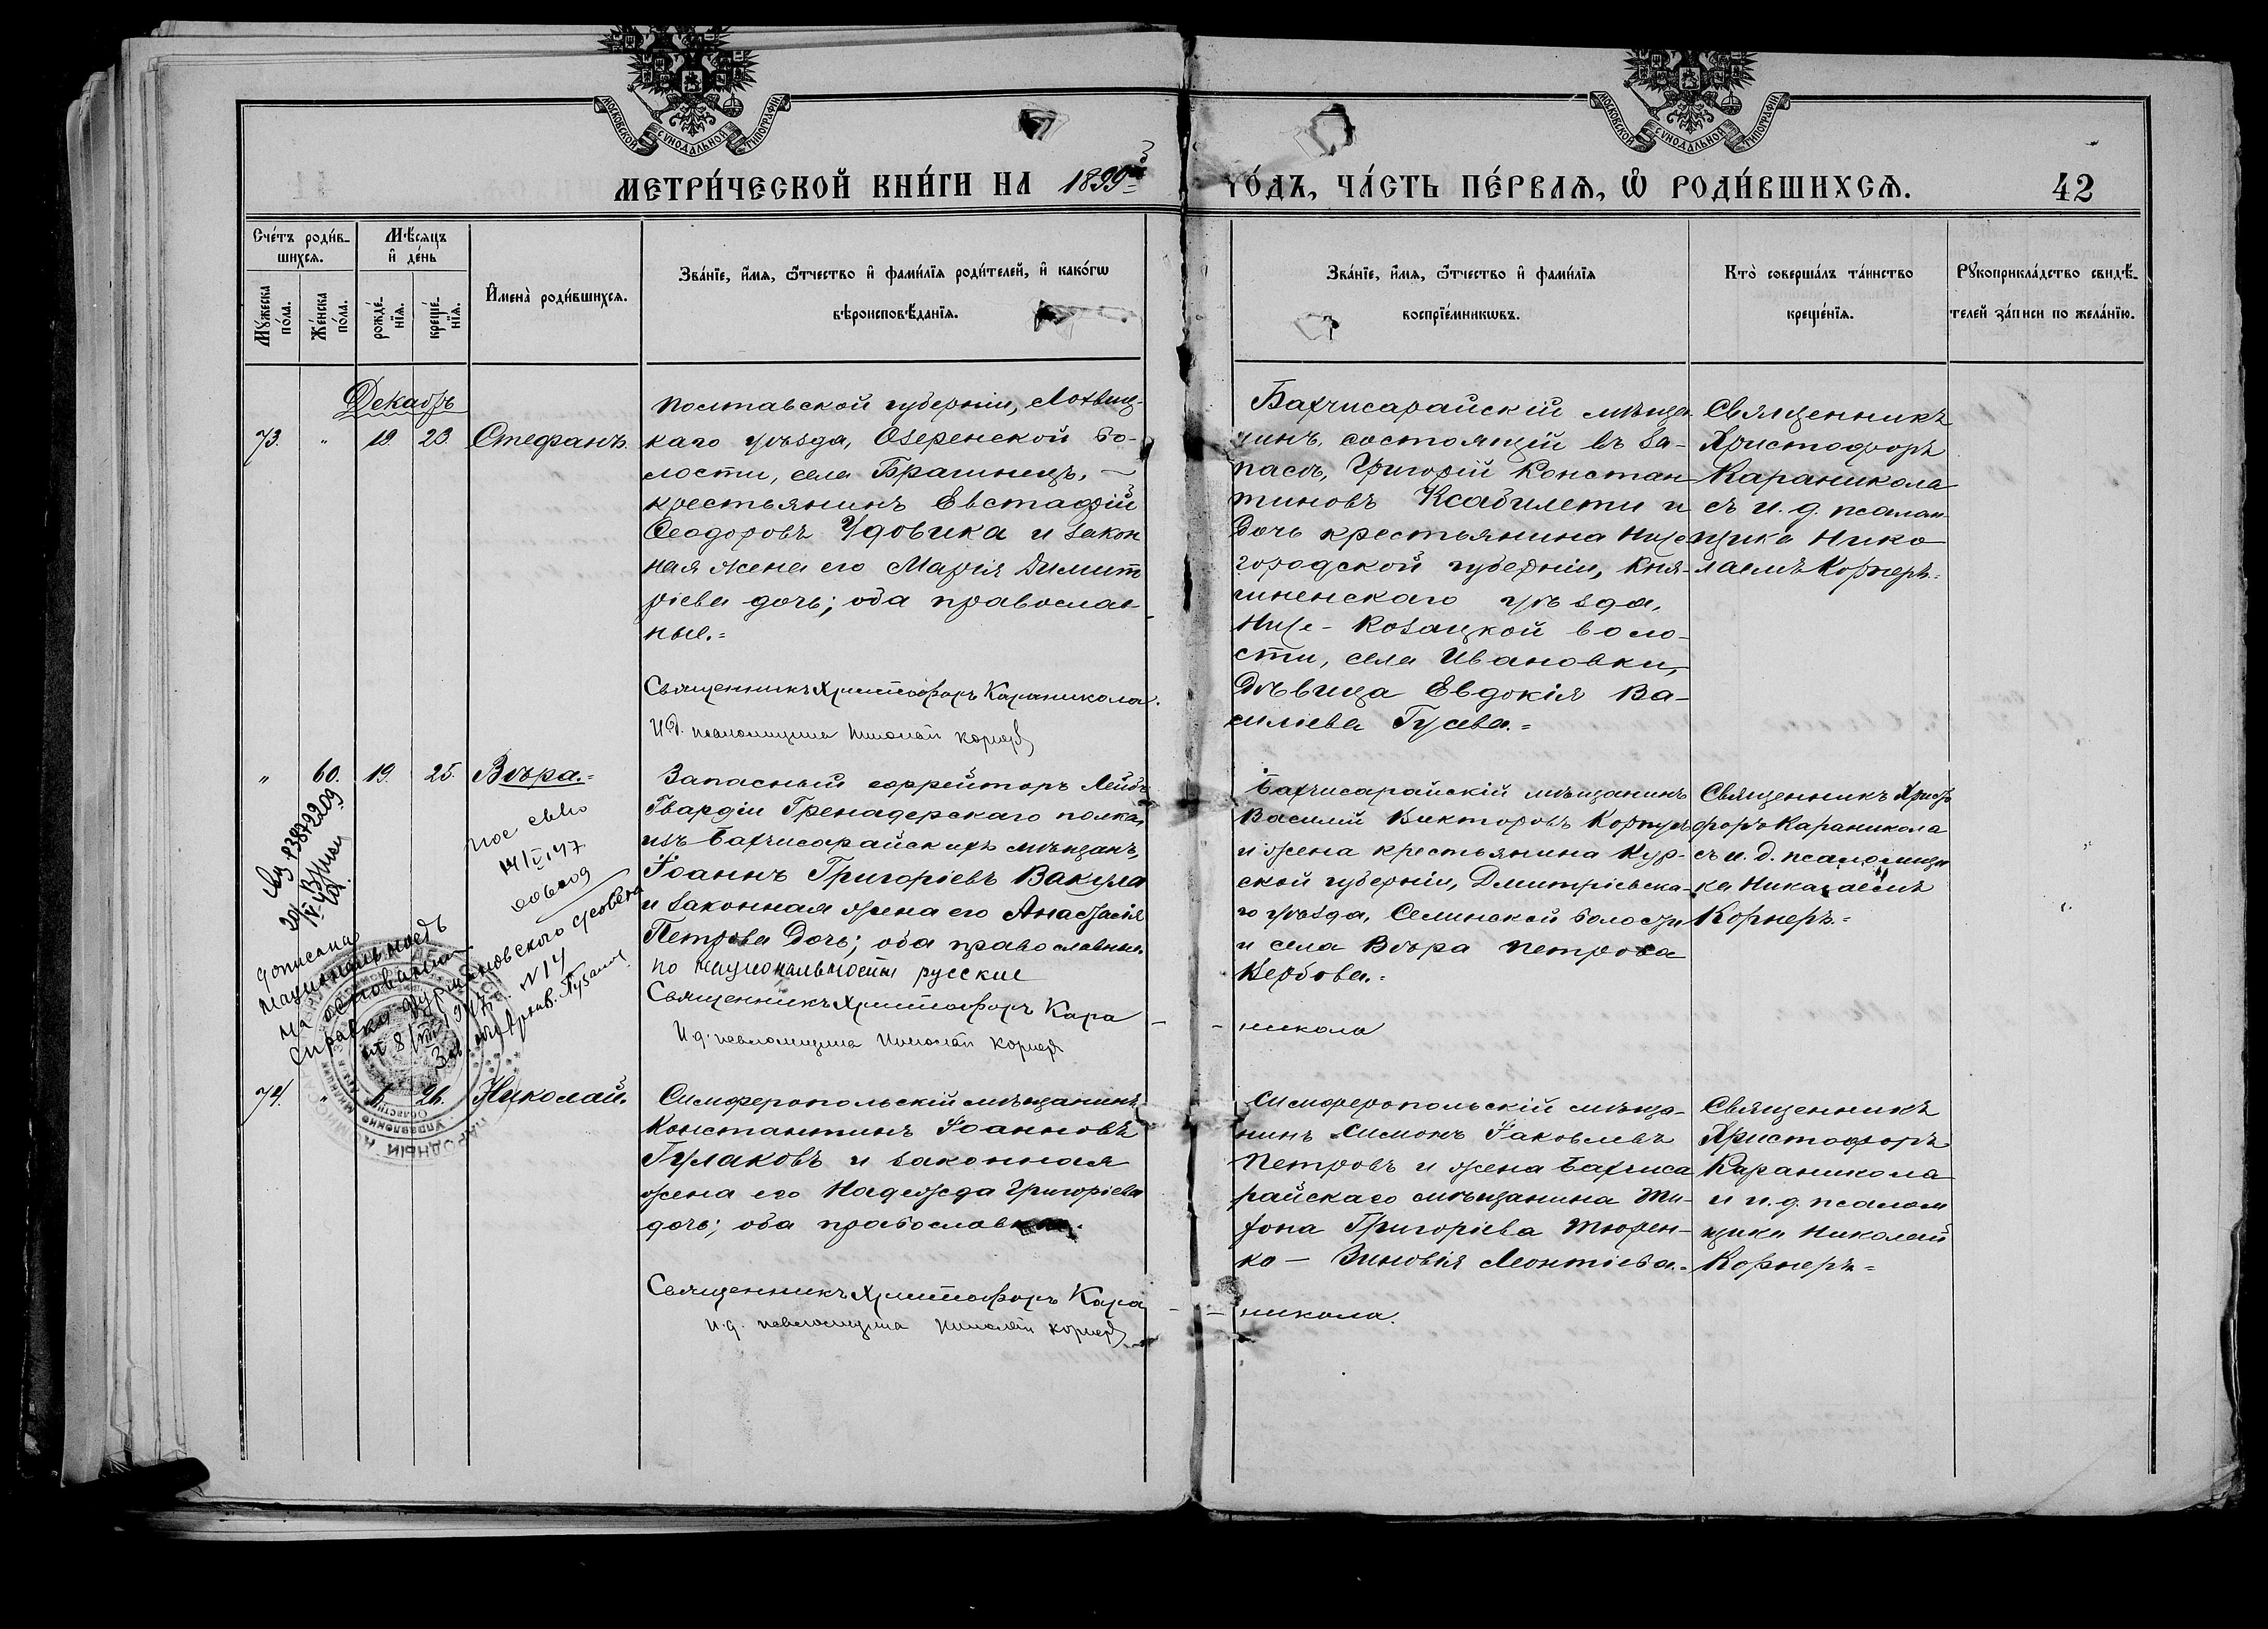 МОСКОВСКОЙ СУНОДАЛЬНОЙ ТИПОГРАФІИ
МОСКОВСКОЙ СУНОДАЛЬНОЙ ТИПОГРАФІИ
МЕТРИ́ЧЕСКОЙ КНИ́ГИ НА 1899й
ГО́ДЪ, ЧА́СТЬ ПЕ́РВАѦ, Ѡ РОДИ́ВШИХСѦ.
42
Сче́тъ роди́в-
шихсѧ.
Мѣ́сѧцъ
и҆ де́нь
Мꙋ́жеска
по́ла.
Же́нска
по́ла.
рожде́-
нїѧ.
креще́-
нїѧ.
И҆мена̀ роди́вшихсѧ.
Зва́нїе, и҆́мѧ, ѻ҆́тчество и҆ фами́лїѧ роди́телей, и҆ како́гѡ
вѣроисповѣ́данїѧ.
Зва́нїе, и҆́мѧ, ѻ҆́тчество и҆ фами́лїѧ
воспрїе́мникѡвъ.
Кто̀ соверша́лъ та́инство
креще́нїѧ.
Рꙋкоприкла́дство свидѣ́-
телей за́писи по жела́нїю.
Декабрь
73. " 19. 23. Стефанъ.
Полтавской губерніи, Лохвиц-
каго уѣзда, Озеренской во-
лости, села Брагинецъ,
крестьянинъ Евстафій
Ѳеодоровъ Удовика и закон
ная жена его Марія Димит
ріева дочь; оба православ-
ные.=
Священникъ Христофоръ Караникола.
И.д. псаломщика Николай Корнеръ
Бахчисарайскій мѣща-
нинъ, состоящій въ за-
пасѣ, Григорій Констан
тиновъ и
Дочь крестьянина Ниже
городской губерніи, Кня-
гиненскаго уѣзда,
Ниже-Козацкой воло-
сти, села Ивановки,
Дѣвица Евдокія Ва-
силіева Гусева.=
Священникъ
Христофоръ
Караникола
съ и. д. псалом
щика Нико
лаемъ Корнеръ=
" 60. 19. 25. Вѣра.=
Запасный ефрейторъ Лейбъ
Гвардіи Гренадерскаго полка,
изъ Бахчисарайскихъ мѣщанъ,
Іоаннъ Григоріевъ Вакула
и законная жена его Анастасія
Петрова Дочь; оба православные.
по национальности русские
Священникъ Христофоръ Кара
- - никола
И.д. псаломщика Николай Корнеръ
Бахчисарайскій мѣщанинъ
Василій Викторовъ
и жена крестьянина Кур-
ской губерніи, Дмитріевска-
го уѣзда, Селинской волости
и села Вѣра Петрова
Священникъ Христо
форъ Караникола
съ и. д. псаломщи
ка Николаемъ
Корнеръ=
дописана
национальность
на основании
справки
от 8/VIII 1947 г. N 14
НАРОДНЫЙ
Управление
74. " 6. 26. Николай.
Симферопольскій мѣщанинъ
Константинъ Іоанновъ
Гулаковъ и законная
жена его Надежда Григоріева
дочь; оба православн
Священникъ Христофоръ Кара
- - никола.
И.д. псаломщика Николай Корнеръ
Симферопольскій мѣща-
нинъ Симонъ Іаковлевъ
Петровъ и жена Бахчиса
райскаго мѣщанина Ти-
хона Григоріева Тюрен-
ко - Зиновія Леонтіева.
Священникъ
Христофоръ
Караникола
и и. д. псалом
щика Николай
Корнеръ=